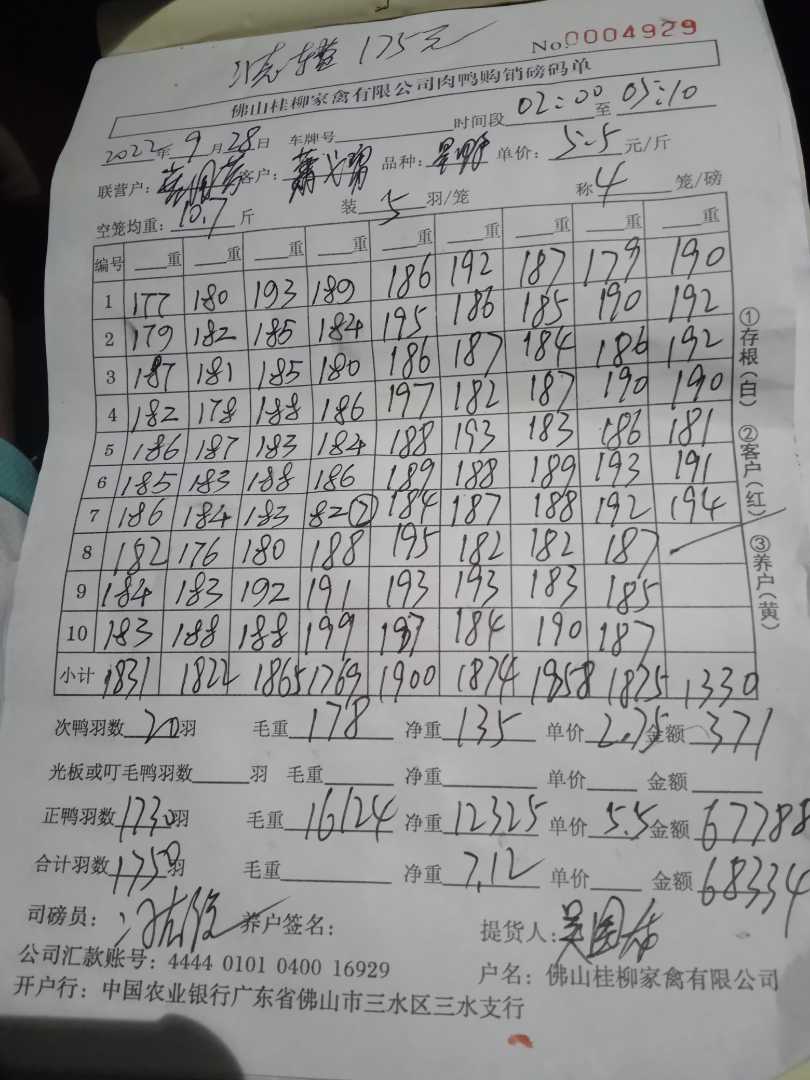 175元
No.0004929
佛山桂柳家禽有限公司肉鸭购销磅码单
2022年9月28日 车牌号 时间段02:00至05:10
联营户: 客户: 品种: 单价:5.5元/斤
空笼均重:10.7斤 装5羽/笼 称4笼/磅
编号 重 重 重 重 重 重 重 重 重
1 177 180 193 189 186 192 187 179 190
2 179 182 185 184 195 186 185 190 192
3 187 181 185 180 186 187 184 186 192
4 182 178 188 186 197 182 187 190 190
5 186 187 183 184 188 193 183 186 181
6 185 183 188 186 189 188 189 193 191
7 186 184 183 82② 184 187 188 192 194
8 182 176 180 188 195 182 182 187
9 184 183 192 191 193 193 183 185
10 183 188 188 199 187 184 190 187
小计 1831 1822 1865 1769 1900 1874 1858 1875 1330
①存根(白) ②客户(红) ③养户(黄)
次鸭羽数20羽 毛重178 净重135 单价2.75金额371
光板或叮毛鸭羽数 羽 毛重 净重 单价 金额
正鸭羽数1730羽 毛重16124 净重12325 单价5.5金额67788
合计羽数1750羽 毛重 净重7.12 单价 金额68334
司磅员: 养户签名: 提货人:吴国
公司汇款账号:4444 0101 0400 16929 户名:佛山桂柳家禽有限公司
开户行:中国农业银行广东省佛山市三水区三水支行